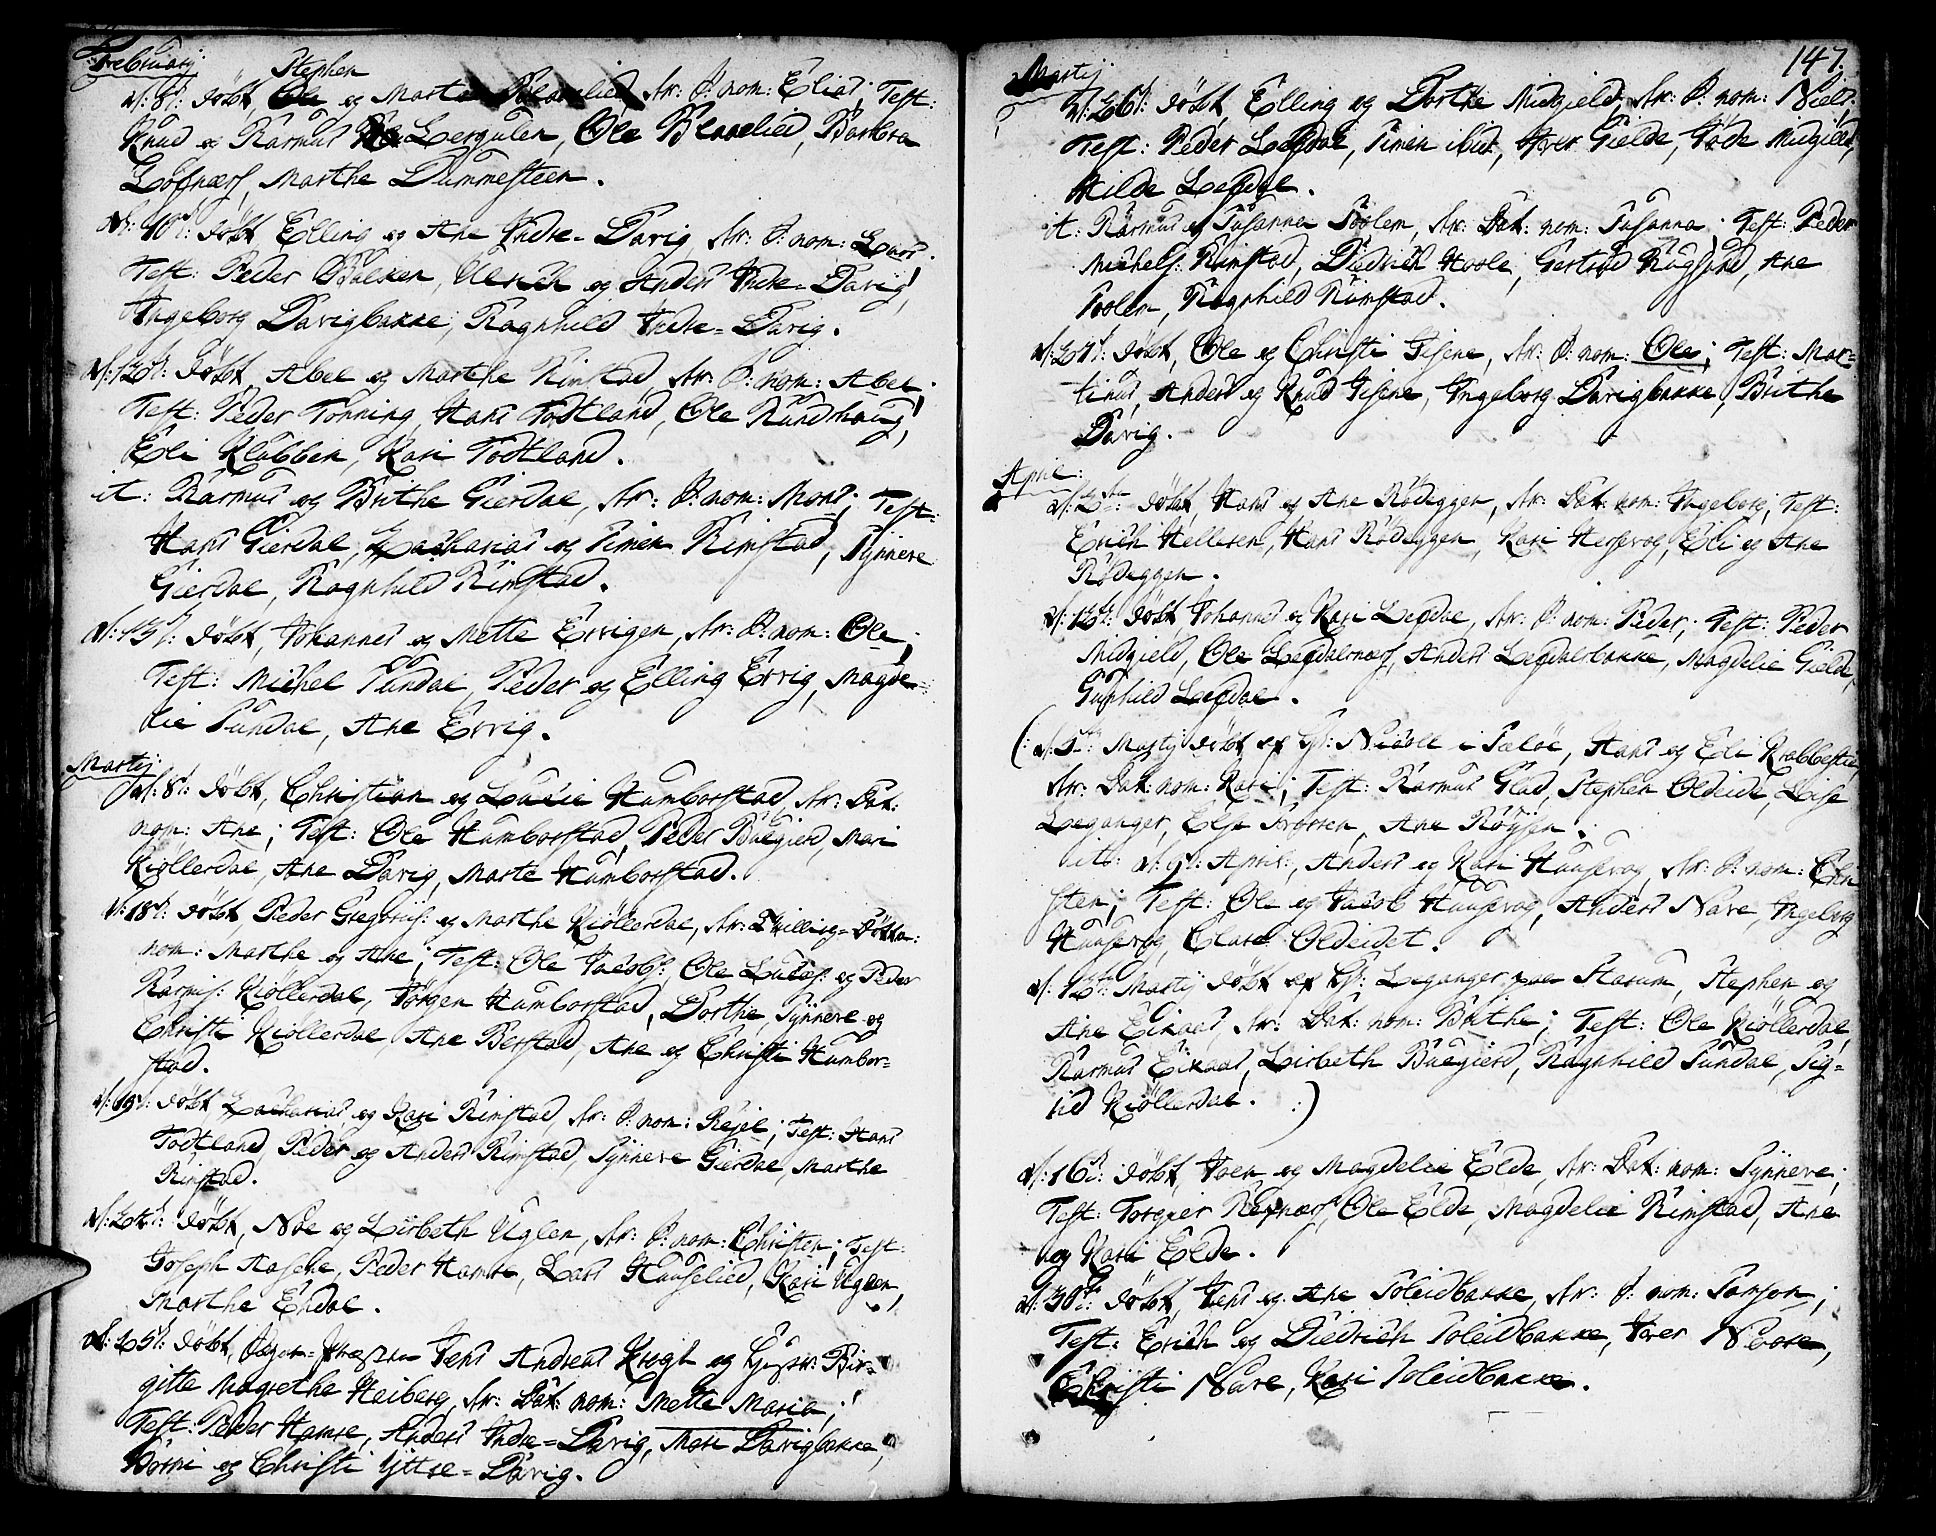 Februarij
Stephen
d: 8d: døbt, Ole og Marte Blaalied, dr: S: nom: Elias; Test:
Knud og Rasmus Lergulen, Ole Blaalied, Barbra
Løfnæss, Marthe Dummesteen.
d: 10d: døbt Elling og Ane Indre-Davig, dr: S: nom: Lars.
Test: Peder Bælsken, Ulrich og Anders Indre-Davig,
Ingeborg Davigbakke, Ragnhild Indre-Davig.
døbt, Abel og Marthe Rimstad, dr: S: nom: Abel;
Test: Peder Tonning, Hans Todtland, Ole Rundhaug,
Eli Klubben, Kari Todtland.
it: Rasmus og Brithe Gierdal, dr: S: nom: Mons; Test:
Hans Gierdal, Zacharias og Simen Rimstad, Synneve
Gierdal, Ragnhild Rimstad.
døbt, Johannes og Mette Ervigen, dr: S: nom: Ole;
Test: Michel Sundal, Peder og Elling Ervig, Magde-
lie Sundal, Ane Ervig.
Martij
d: 8d: døbt, Christian og Lucie Humborstad, dr: Dat:
nom: Ane; Test: Ole Humborstad, Peder Buegierd, Mari
Kiøllerdal, Ane Davig, Marte Humborstad.
d: 18d: døbt, Peder Gregoris: og Marthe Kiøllerdal, dr: Tvilling-Døttre:
nom: Marthe og Ane; Test: Ole Jacobs: Ole Lucas: og Peder
Rasmis: Kiøllerdal, Jørgen Humborstad, Dorthe, Synneve og
Christi Kiøllerdal, Ane Berstad, Ane og Christi Humbor-
stad.
d: 19d: døbt Zacharias og Kari Rimstad, dr: S: nom: Rejel; Test: Hans
Todtland, Peder og Anders Rimstad, Synneve Gierdal, Marthe
Rimstad.
døbt, Noe og Lisbeth Uglen, dr: S: nom: Christen; Test:
Joseph Aasche, Peder Hamre, Lars Haufelied, Kari Uglen,
Marthe Endal.
d: 25d: døbt, Jens Andreas Kregh og Hustr: Bir-
gitte Magrethe Heiberg, dr: Dat: nom: Mette Maria;
Test: Peder Hamre, Anders Indre-Davig, Mari Davigbakke,
Børni og Christi Yttre-Davig.
147.
Martij
d: 26d: døbt Elling og Dorthe Midgield, dr: S: nom: Niels;
Test: Peder Legdal, Simen ibid, Iver Gielde, Tøde Midgield,
Hilde Legdal.
it: Rasmus og Susanna Soolem, dr: Dat: nom: Susanna; Test: Peder
Michels: Rimstad, Didrich Hoole, Gertrud Rugsund, Ane
Soolem, Ragnhild Rimstad.
d: 27d: døbt, Ole og Christi Gisene, dr: S: nom: Ole; Test: Mar-
tinus, Anders og Knud Gisene, Ingeborg Davigbakke, Brithe
Davig.
April:
døbt, Hans og Ane Rødeggen, dr: Dat: nom: Ingeborg; Test:
Erich Hellesen, Hans Rødeggen, Kari Hessevog, Eli og Ane
Rødeggen.
døbt, Johannes og Kari Legdal, dr: S: nom: Peder; Test: Peder
Midgield, Ole Legdalsnæss, Anders Legdalsbakke, Magdelie Gielde,
Gunhild Legdal.
(: Martij døbt af Hr: Nicoll i Sæløe, Hans og Eli Krabbestie,
dr: Dat: nom: Kari; Test: Rasmus Glad, Stephen Oldeide, Lisa
Leganger, Else Frøysen, Ane Røysen.
ito: d: 9d: April:, Anders og Kari Haussevog, dr: S: nom: Chri
sten; Test: Ole og Jacob Haussevog, Anders Nave, Ingeborg
Haussevog, Clare Oldeidet.
Martij døbt af Hr: Leganger paa Starum, Stephen og
Ane Eikaas, dr: Dat: nom: Brithe; Test: Ole Kiøllerdal,
Rasmus Eikaas, Lisbeth Buegierd, Ragnhild Sundal, Sig-
rid Kiøllerdal. :)
d: 16d: døbt, Joen og Magdelie Elde, dr: Dat: nom: Synneve;
Test: Torgier Røgnæss, Ole Elde, Magdelie Rimstad, Ane
og Kari Elde.
d: 30d: døbt, Jens og Ane Soleidbakke, dr: S: nom: Samson;
Test: Erich og Diedrich Soleidbakke, Iver Nave,
Christi Nave, Kari Soleidbakke.